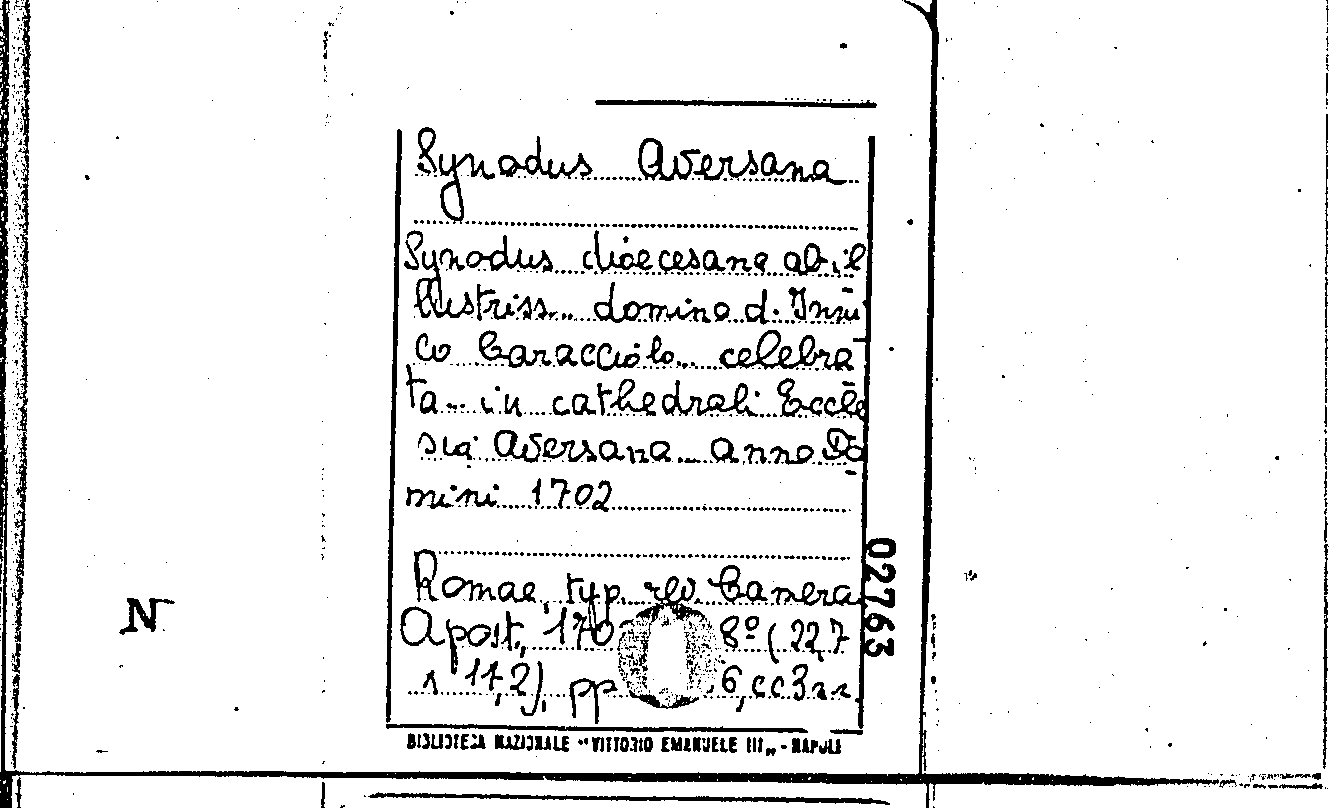 Synodus Aversana
Synodus dioecesana ab il
llustriss... domino d. Inni
co Caracciolo... celebra
ta... in cathedrali Eccle
sia Aversana... anno Do
mini 1702
Romae, typ. rev. Camera
Apost., 170 8º (22,7
x 11,2), pp 6, cc 3 nn.
02763
N
BIBLIOTECA NAZIONALE "VITTORIO EMANUELE III" - NAPOLI